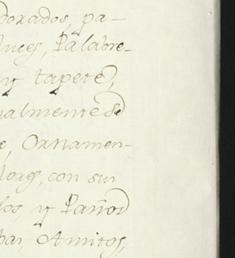 dorados, pa-
luces, Palabre-
y tapete,
ualmente de
e, Ornamen-
con sus
los, y Paños
bas, Amitos,